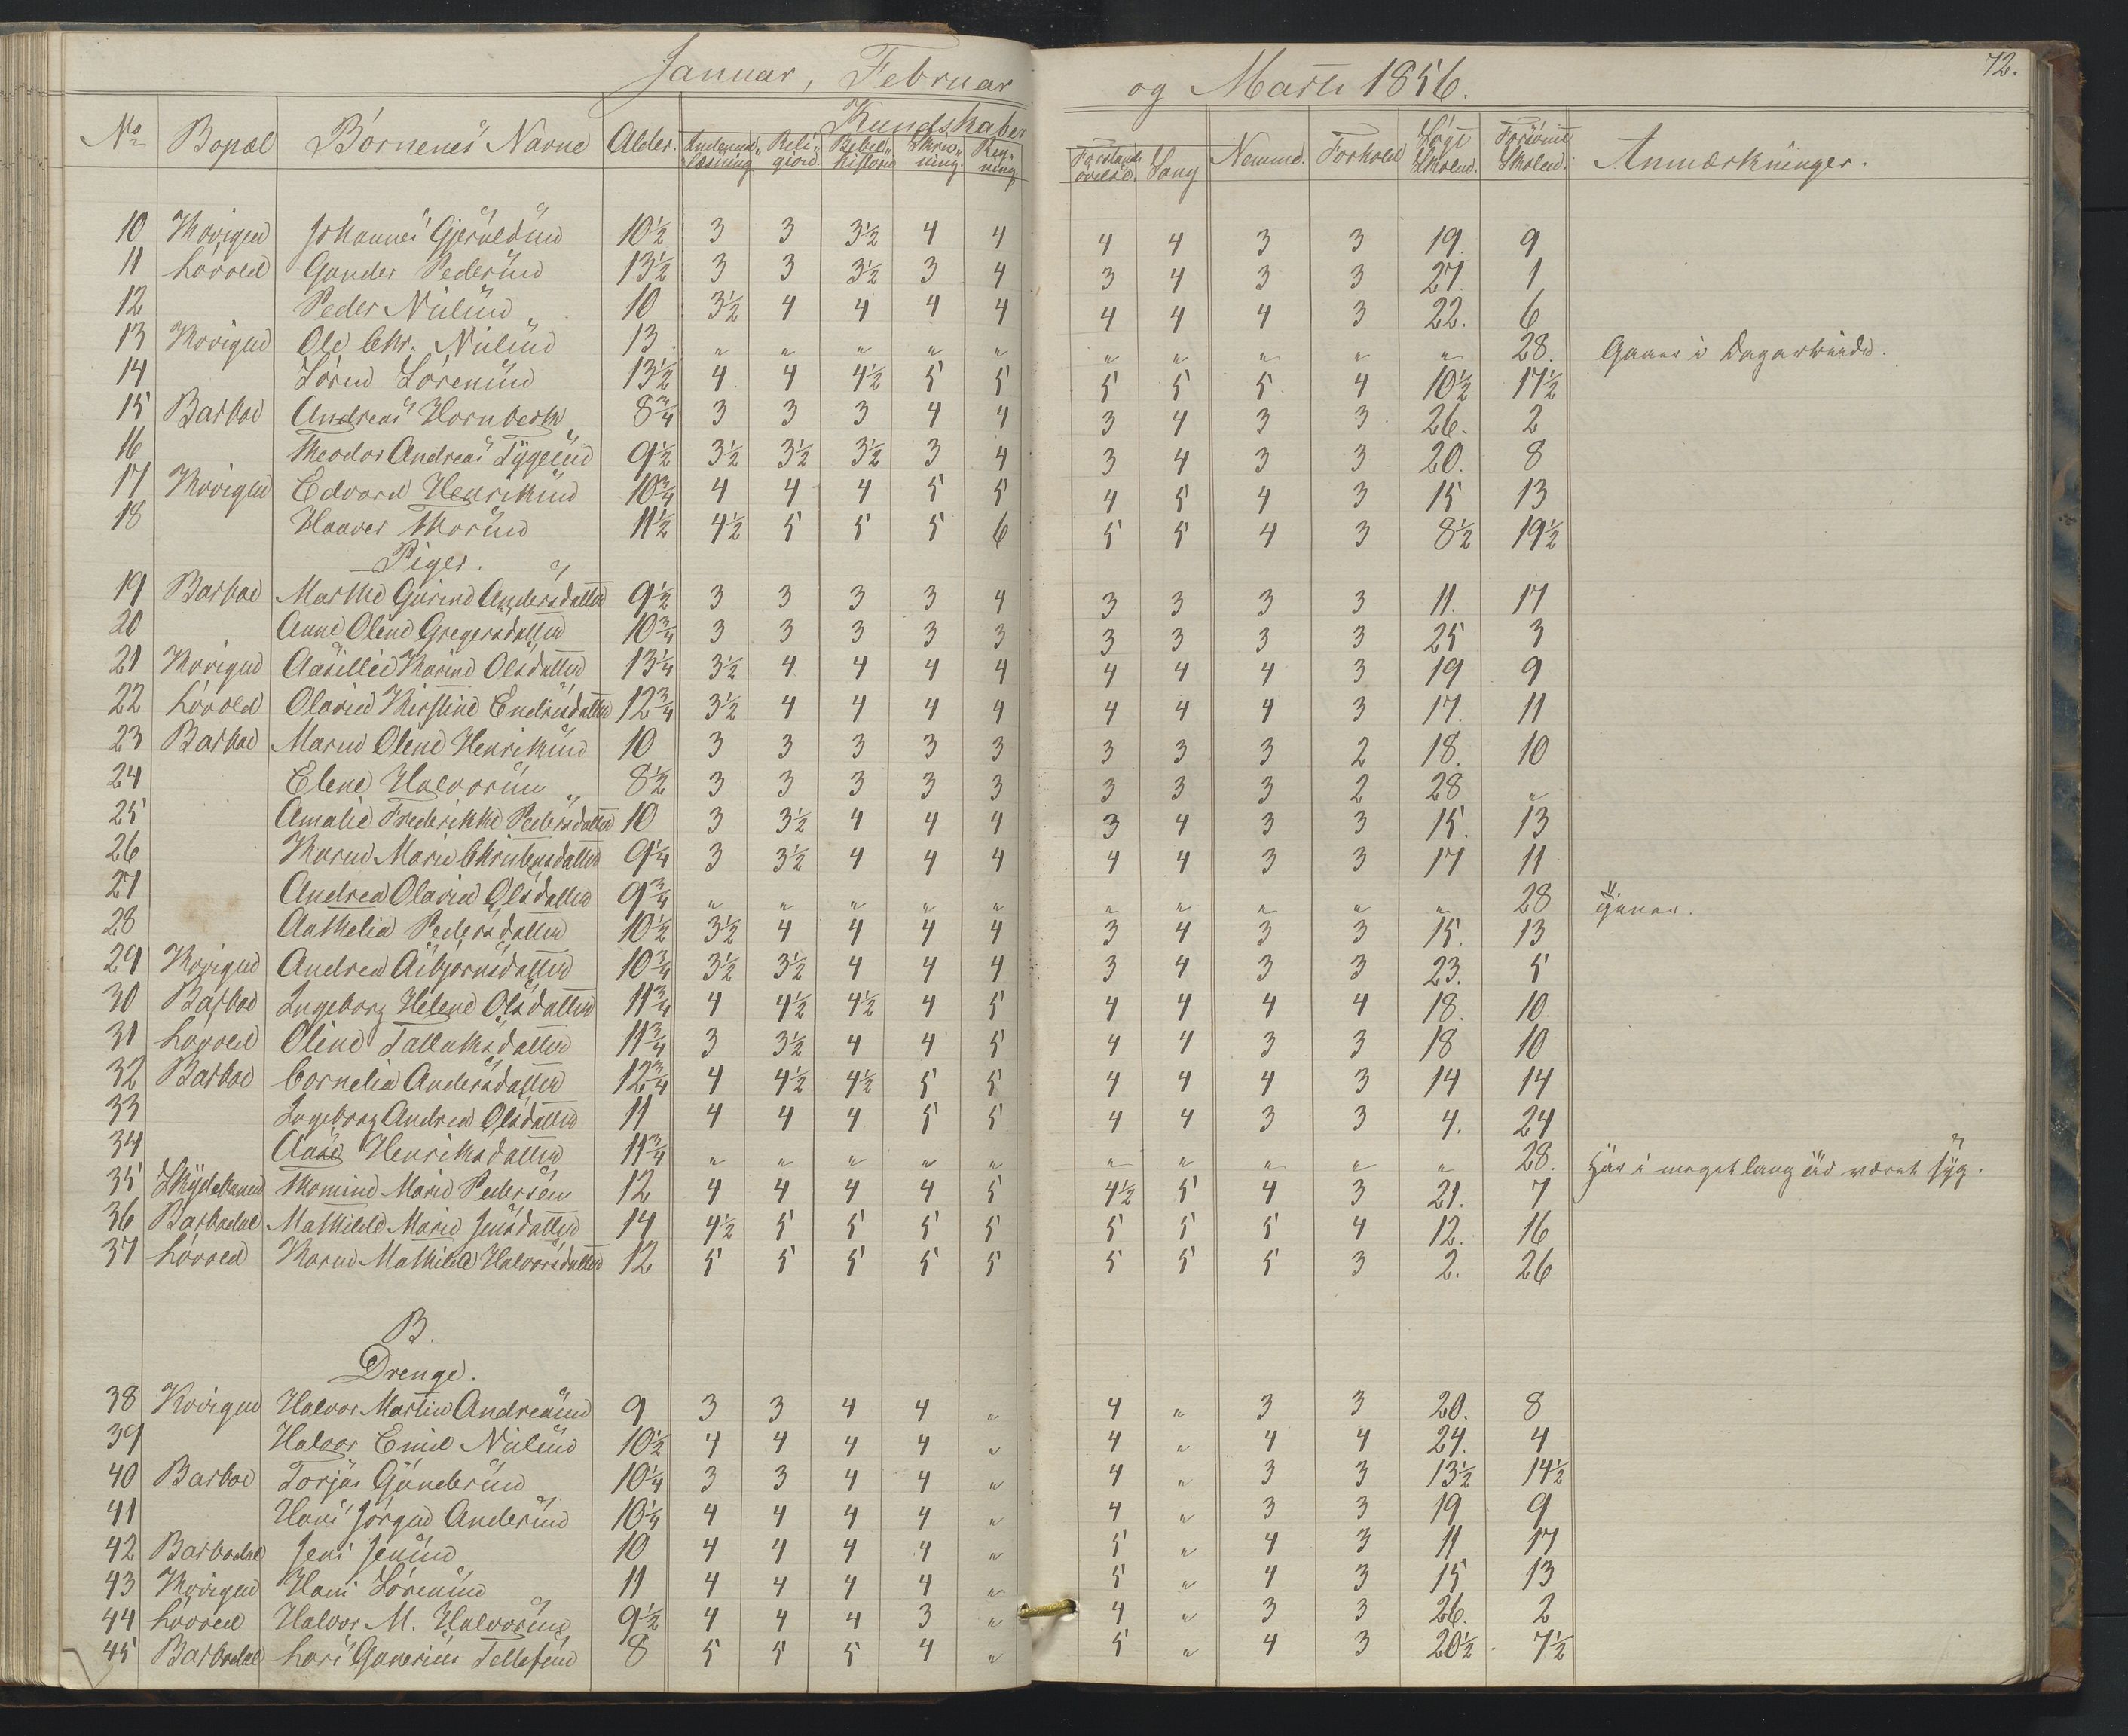 Januar, Februar og Marts 1856. 72.
No Bopæl Börnenes Navne Alder. Kundskaber
Indenads-læsning Reli-gion. Bibel-historie Skriv-ning Reg-ning Forstands övelse. Sang Nemme. Forhold Sögt Skolen. Forsömt Skolen. Anmærkninger.
10 Kovigen Johannes 10½ 3 3 3½ 4 4 4 4 3 3 19. 9
11 Lövold Gunder Pedersen 13½ 3 3 3½ 3 4 3 4 3 3 27. 1
12 Peder Nielsen „ 10 3½ 4 4 4 4 4 4 4 3 22. 6
13 Kovigen Ole Chr. Nielsen 13 „ „ „ „ „ „ „ „ „ „ 28. Gaaer i Dagarbeide.
14 Sören Sörensen 13½ 4 4 4½ 5 5 5 5 5 4 10½ 17½
15 Barboe Andreas Hornbech 8¾ 3 3 3 4 4 3 4 3 3 26. 2
16 Theodor Andreas Tygesen 9½ 3½ 3½ 3½ 3 4 3 4 3 3 20. 8
17 Kovigen Edvard Henriksen 10¾ 4 4 4 5 5 4 5 4 3 15 13
18 Haaver Thorsen 11½ 4½ 5 5 5 6 5 5 4 3 8½ 19½
Piger.
19 Barboe Marthe Gurine Andersdatter 9½ 3 3 3 3 4 3 3 3 3 11. 17
20 Anne Olene Gregersdatter 10¾ 3 3 3 3 3 3 3 3 3 25 3
21 Kovigen Aasillie Karine Olsdatter 13¼ 3½ 4 4 4 4 4 4 4 3 19 9
22 Lövold Olavie Kirstine Endresdatter 12¾ 3½ 4 4 4 4 4 4 4 3 17. 11
23 Barboe Maren Olene Henriksen 10 3 3 3 3 3 3 3 3 2 18. 10
24 Elene Halvorsen „ 8½ 3 3 3 3 3 3 3 3 2 28 „
25 Amalie Frederikke Pedersdatter 10 3 3½ 4 4 4 3 4 3 3 15. 13
26 Karen Marie Christensdatter 9¼ 3 3½ 4 4 4 4 4 3 3 17 11
27 Andrea Olavia Olsdatter 9¾ „ „ „ „ „ „ „ „ „ „ 28
28 Anthelia Pedersdatter 10½ 3½ 4 4 4 4 3 4 3 3 15. 13
29 Kovigen Andrea Asbjörnsdatter 10¾ 3½ 3½ 4 4 4 3 4 3 3 23. 5
30 Barboe Ingeborg Helene Olsdatter 11¾ 4 4½ 4½ 4 5 4 4 4 4 18. 10
31 Lövold Oline Tallaksdatter 11¾ 3 3½ 4 4 5 4 4 3 3 18 10
32 Barboe Cornelia Andersdatter 12¾ 4 4½ 4½ 5 5 4 4 4 3 14 14
33 Ingeborg Andrea Olsdatter 11 4 4 4 5 5 4 4 3 3 4. 24
34 Aase Henriksdatter 11¾ „ „ „ „ „ „ „ „ „ „ 28. Har i meget lang Tid været syg.
35 Skydebanen Thomine Marie Pedersen 12 4 4 4 4 5 4½ 5 4 3 21. 7
36 Barbodal Mathilde Marie Jensdatter 14 4½ 5 5 5 5 5 5 5 4 12. 16
37 Lövold Karen Mathilde Halvorsdatter 12 5 5 5 5 5 5 5 5 3 2. 26
B.
Drenge.
38 Kovigen Halvor Martin Andreasen 9 3 3 4 4 „ 4 „ 3 3 20. 8
39 Halvor Emil Nielsen 10½ 4 4 4 4 „ 4 „ 4 4 24. 4
40 Barboe Torjus Gundersen 10¼ 3 3 4 4 „ 4 „ 3 3 13½ 14½
41 Hans Jörgen Andersen 10¼ 4 4 4 4 „ 4 „ 3 3 19 9
42 Barbodal Jens Jensen 10 4 4 4 4 „ 5 „ 4 3 11 17
43 Kovigen Hans Sörensen 11 4 4 4 4 „ 5 „ 4 3 15 13
44 Lövold Halvor M. Halvorsen 9½ 4 4 4 3 „ 4 „ 3 3 26. 2
45 Barbodal Lars Gunerius Tellefsen 8 5 5 5 4 „ 5 „ 4 3 20½ 7½